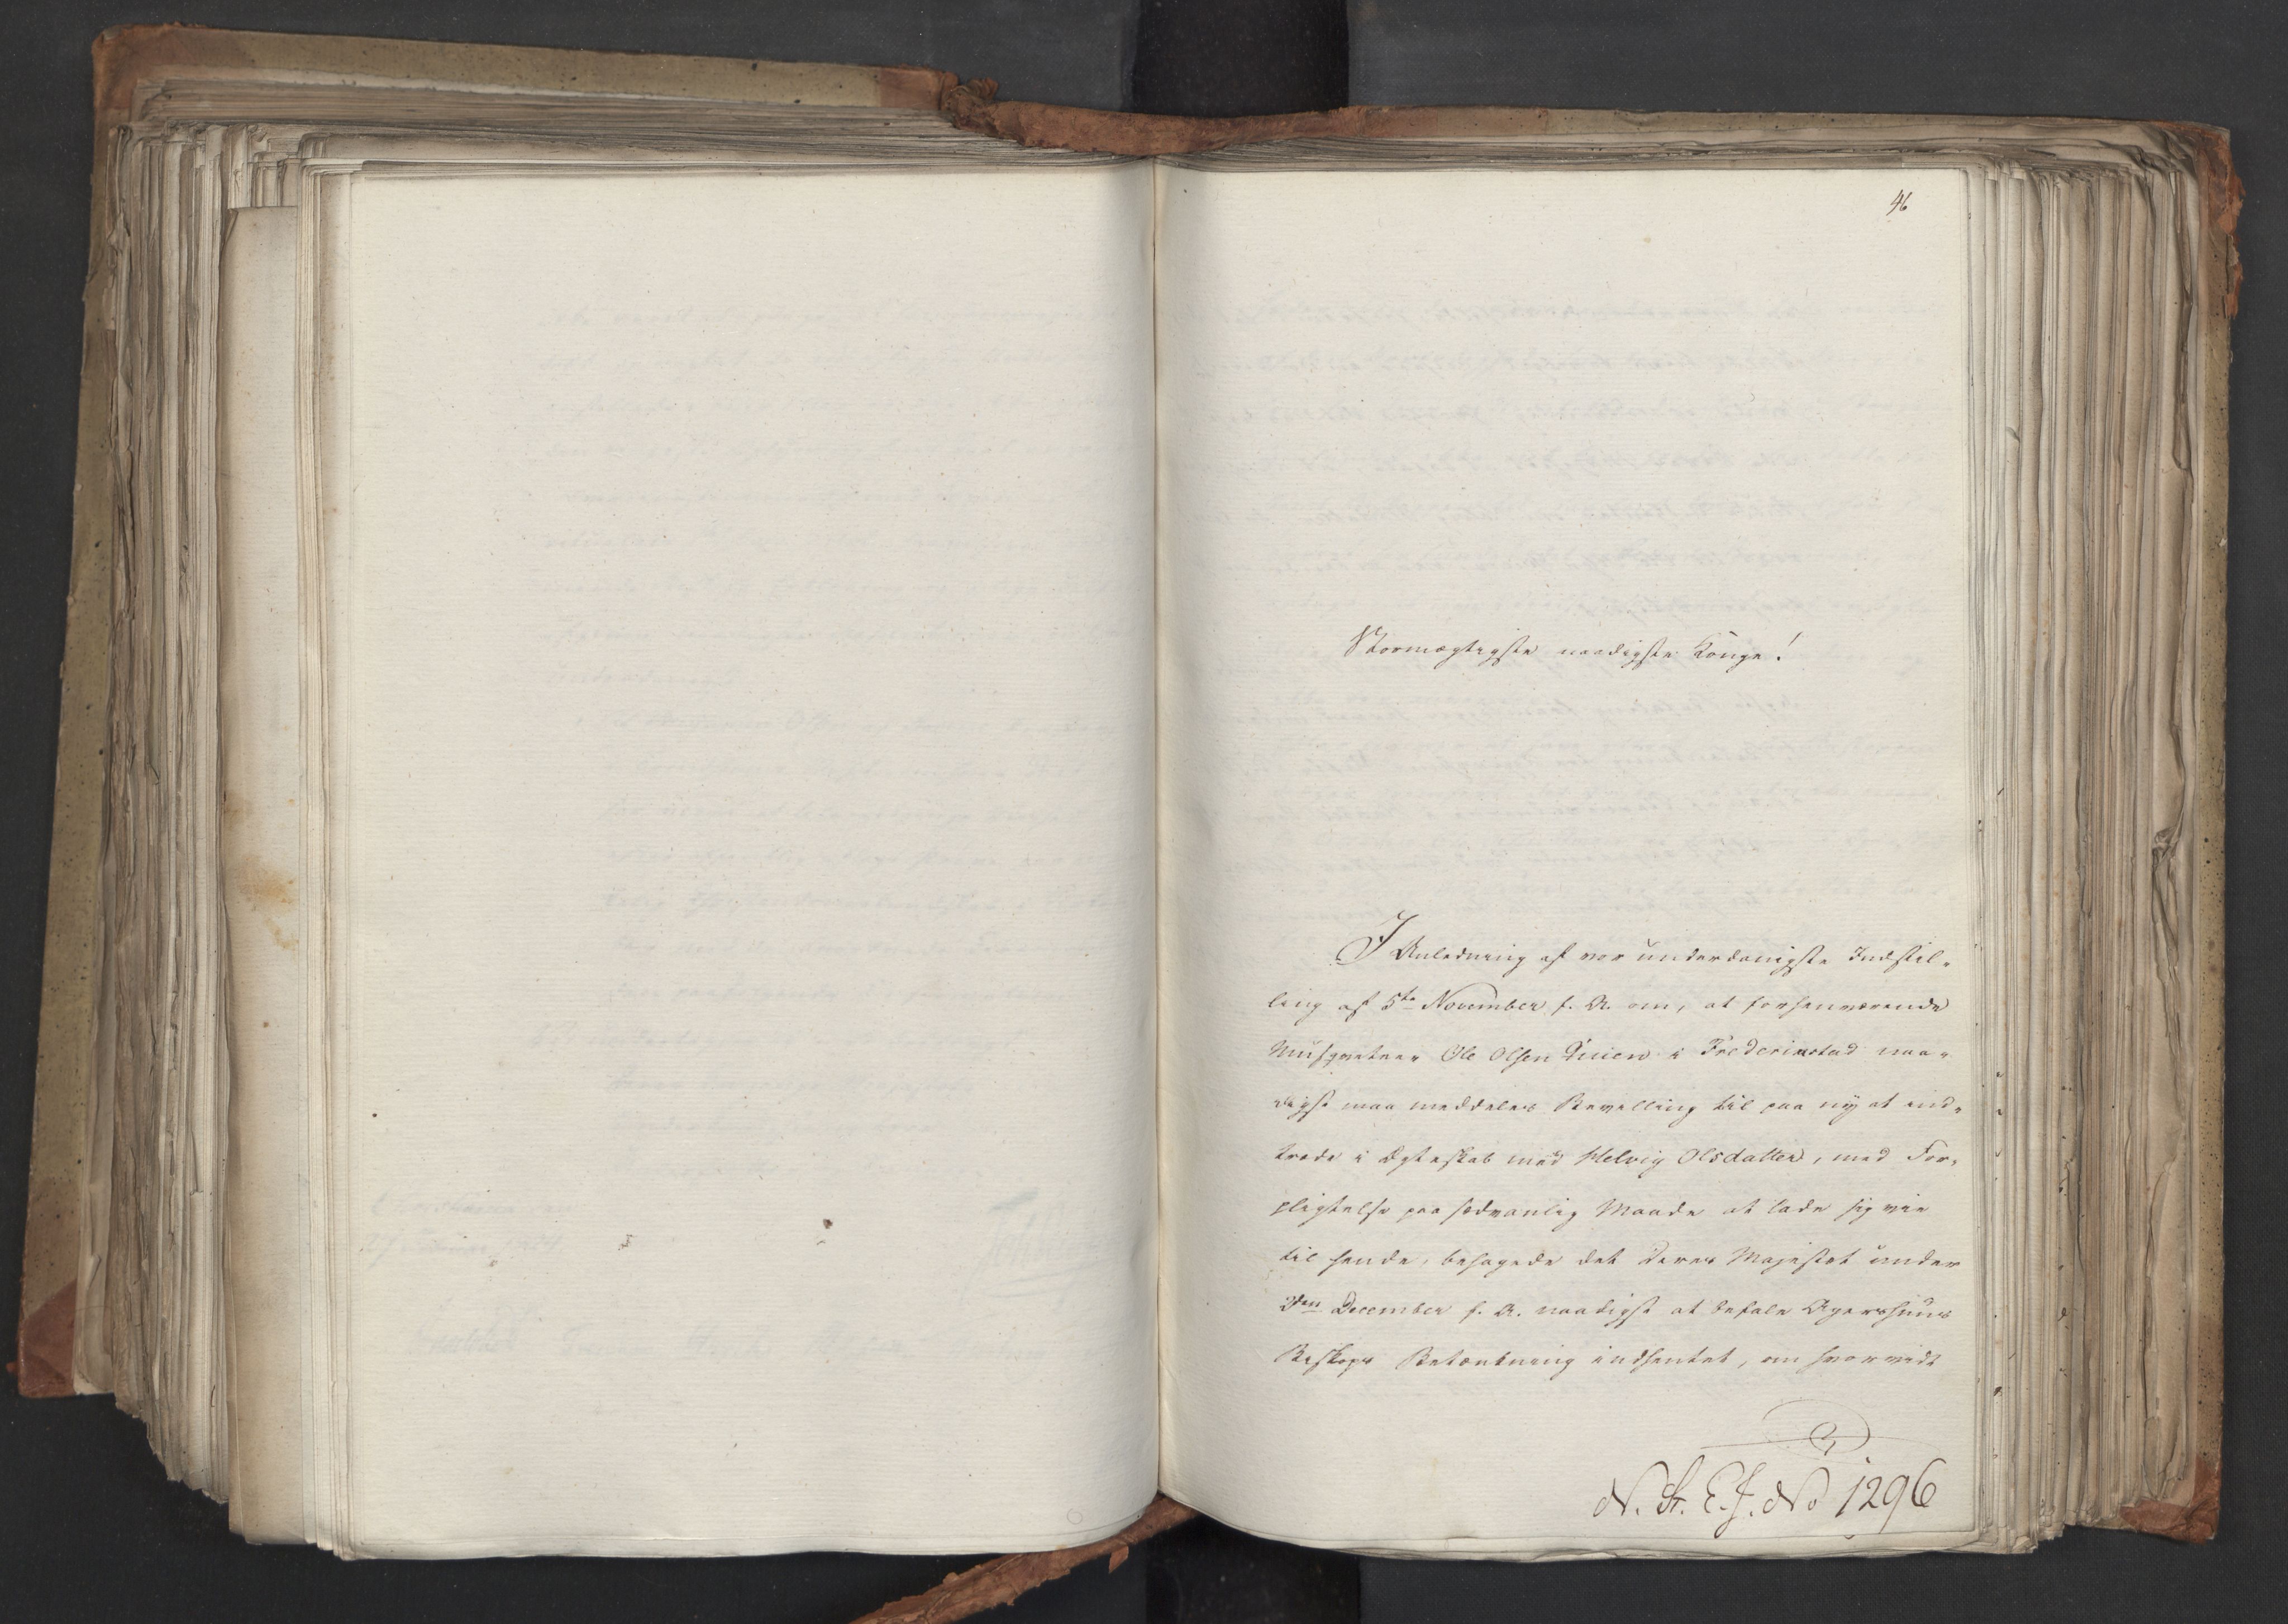 46
Stormægtigste naadigste Konge!
I Anledning af vor underdanigste Indstil-
ling af 5te November f. A. om, at forhenværende
Musqveteer Ole Olsen i Frederikstad naa-
digst maa meddeles Bevilling til paa ny at ind-
træde i Ægteskab med Helvig Olsdatter, med For-
pligtelse paa sædvanlig Maade at lade sig vie
til hende, behagede det Deres Majestæt under
December f. A. naadigst at befale Agershuus
Biskops Betænkning indhentet, om hvorvidt
N. St. E. J. No 1296